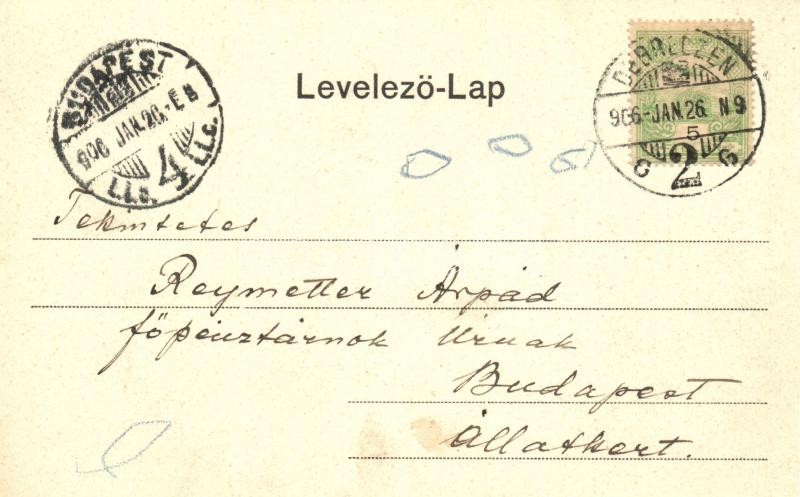 BUDAPEST
906 JAN.26.-E 8
4
I.I.c.
I.I.c.
Levelező-Lap
DEBRECZEN
906-JAN.26. N 9
5
2
C C
Tekintetes
Reymetter Árpád
főpénztárnok Úrnak
Budapest
Állatkert.